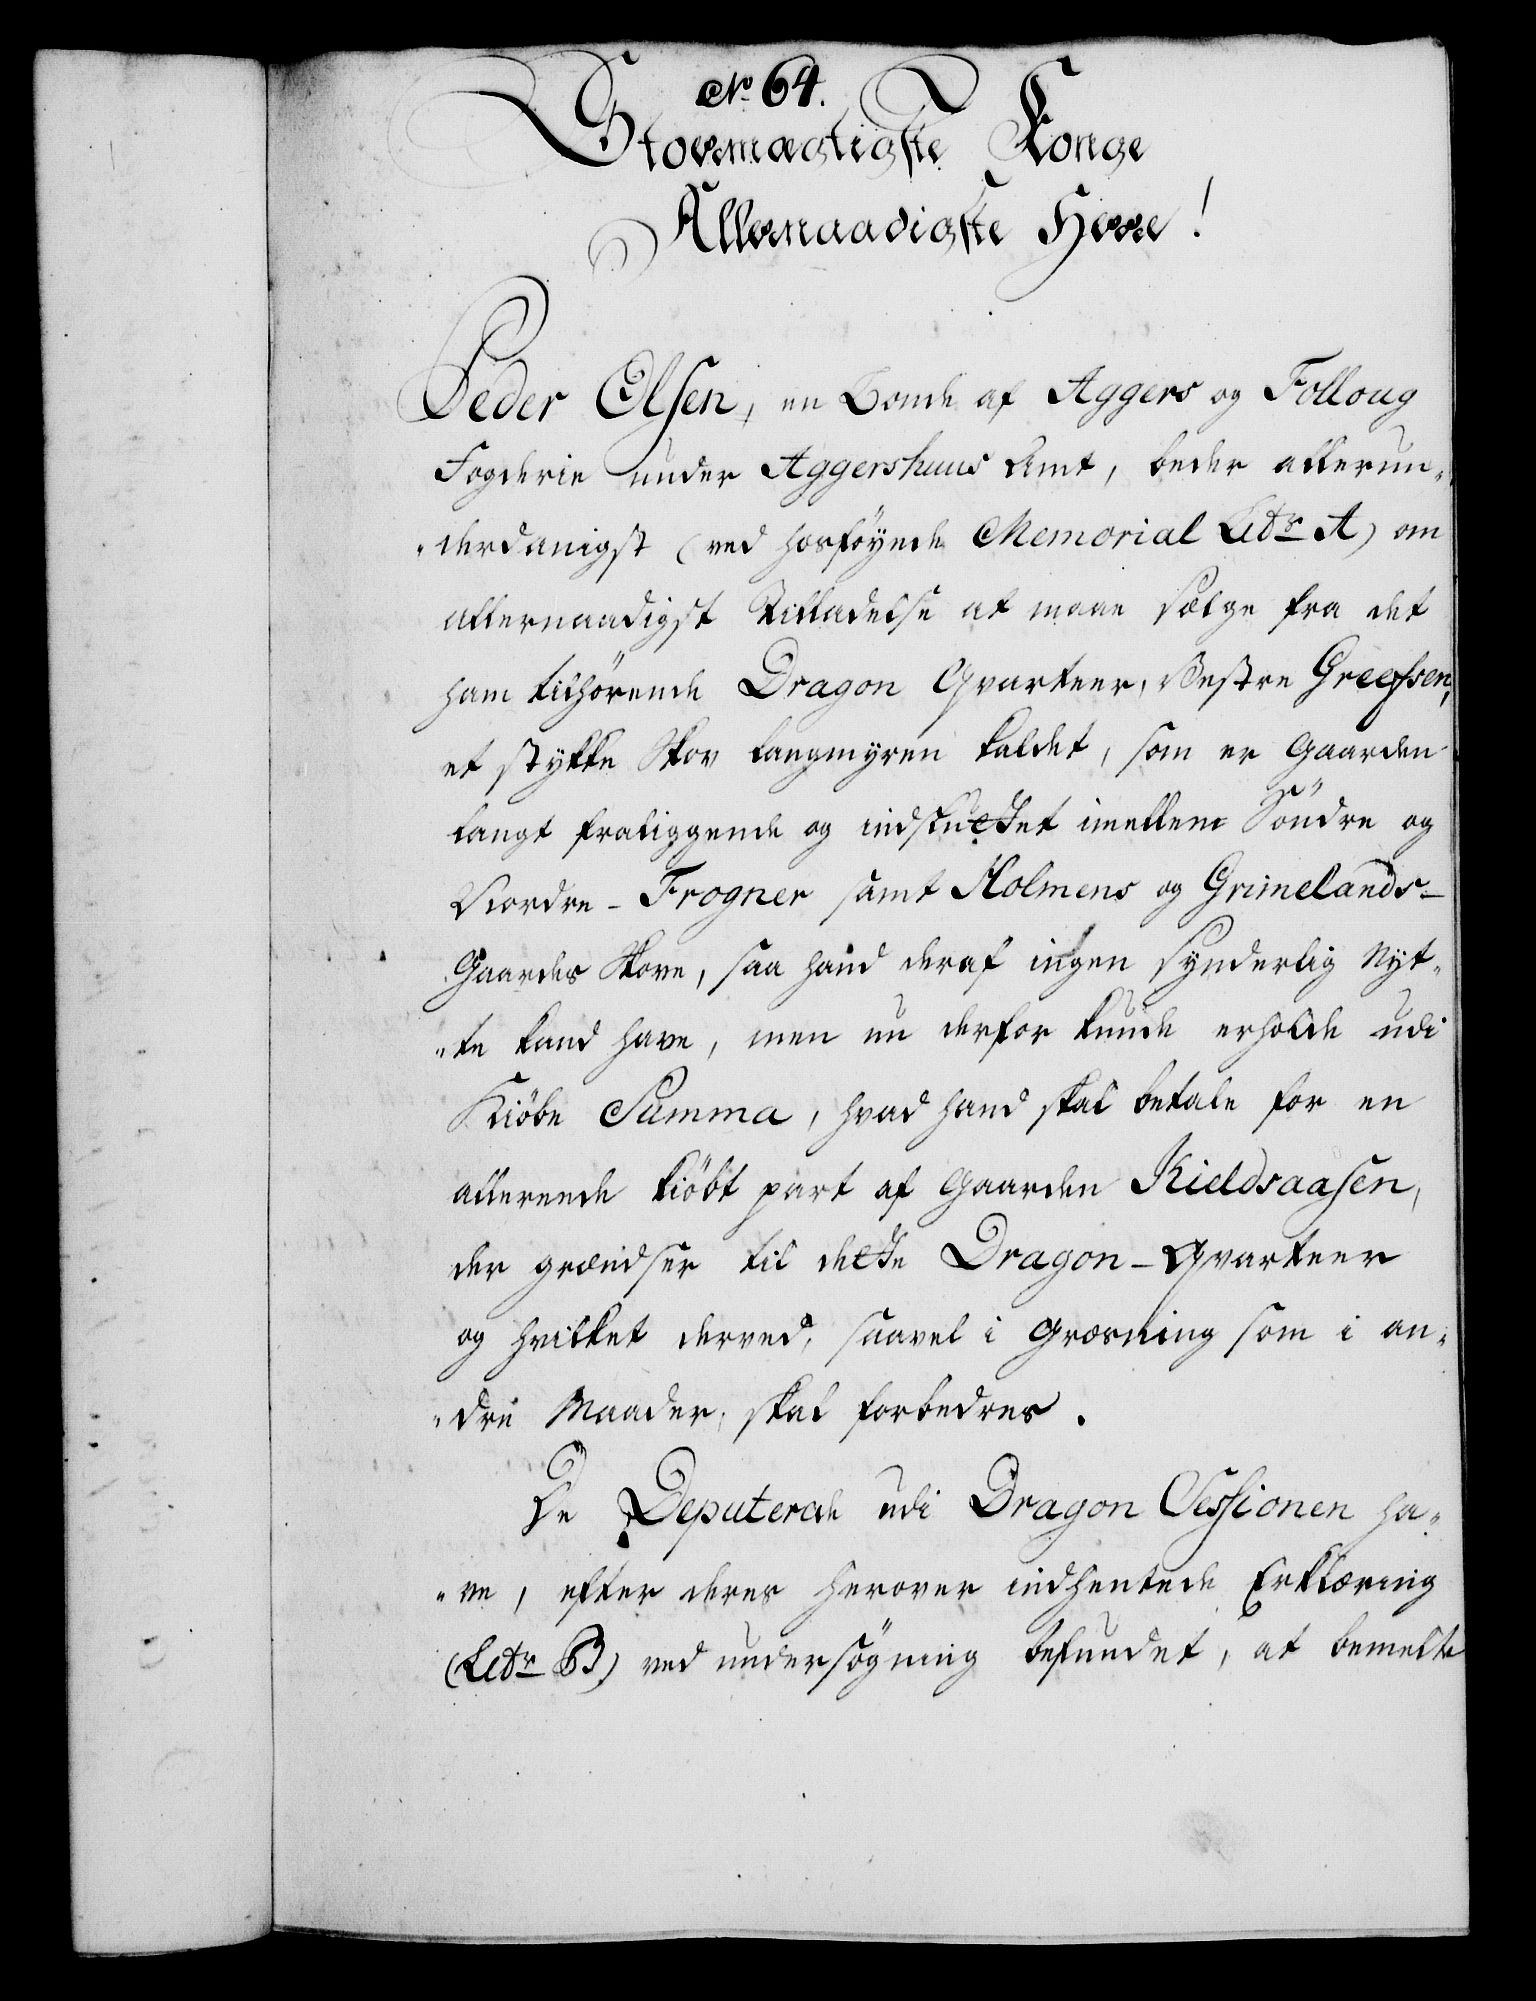 No 64.
Stormægtigste Konge
Allernaadigste Herre!
Peder Olsen, en Bonde af Aggers og Folloug
Fogderie under Aggershuus Amt, beder allerun„
„derdanigst (ved hosföyede Memorial Litr A) om
allernaadigst Tilladelse at maae sælge fra det
ham tilhörende Dragon Qvarteer, Vestre Greefsen,
et stykke Skov Langmyren kaldet, som er Gaarden
langt fraliggende og indslu##et imellem Söndre og
Nordre - Frogner samt Holmens og Grimelands-
Gaardes Skove, saa hand deraf ingen synderlig Nyt„
„te kand have, men nu derfor kunde erholde udi
Kiöbe Summa, hvad hand skal betale for en
allerede kiöbt part af Gaarden Kieldsaasen,
der grændser til dette Dragon-Qvarteer
og hvilket derved, saavel i Græsning som i an„
„dre Maader, skal forbedres.
De Deputerede udi Dragon Sessionen ha„
„ve, efter deres herover indhentede Erklæring
(Litr B) ved undersögning befundet, at bemelte